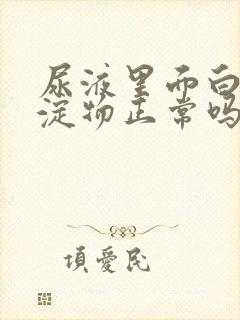 尿液里面白
淀物正常吗
項愛民